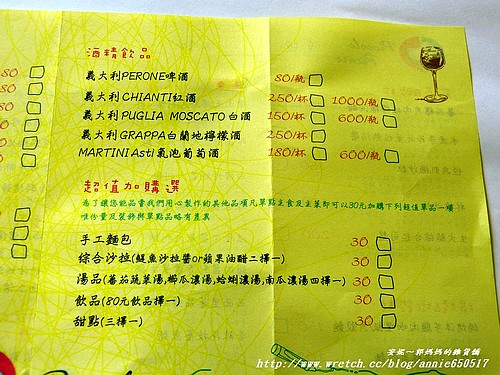 酒精飲品
義大利PERONE啤酒 80/瓶
義大利CHIANTI紅酒 250/杯 1000/瓶
義大利PUGLIA MOSCATO白酒 150/杯 600/瓶
義大利GRAPPA白蘭地檸檬酒 250/杯
MARTINI Asti氣泡葡萄酒 180/杯 600/瓶
超值加購選
為了讓您能品嘗我們用心製作的其他品項凡單點主食及主菜即可以30元加購下列超值單品一項
唯份量及裝飾與單點品略有差異
手工麵包 30
綜合沙拉(鯷魚沙拉醬or蘋果油醋二擇一) 30
湯品(蕃茄蔬菜湯,椰瓜濃湯,蛤蜊濃湯,南瓜濃湯四擇一) 30
飲品(80元飲品擇一) 30
甜點(三擇一) 30
安妮一郭媽媽的雜貨舖
http://www.wretch.cc/blog/annie650517